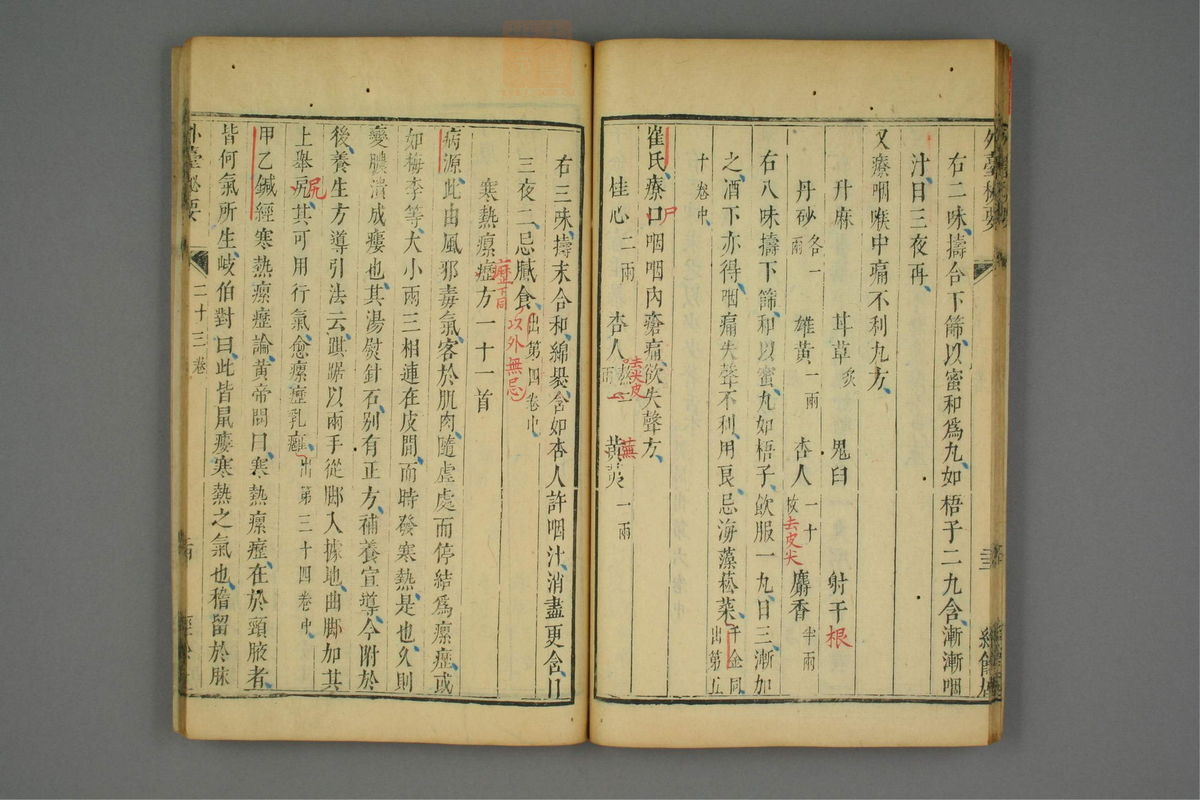 外臺秘要
右二味擣合下篩以蜜和爲丸如梧子二九含漸漸咽
汁日三夜再
又療咽喉中痛不利丸方
升麻 甘草炙 鬼臼 射干根
丹砂各一兩 雄黃一兩 杏人一十枚去皮尖 麝香半兩
右八味擣下篩和以蜜丸如梧子飲服一九日三漸加
之酒下亦得咽痛失聲不利用良忌海藻菘菜千金同出第五
十卷中
崔氏療口咽咽內瘡痛欲失聲方
尸
桂心二兩 杏人熬一兩去尖皮 蕪荑一兩
右三味擣末合和綿褁含如杏人許咽汁消盡更含日
三夜二忌膩食出第四卷中
以外無忌
寒熱瘰癧方一十一首
病源此由風邪毒氣客於肌肉隨虛處而停結爲瘰癧或
如梅李等大小兩三相連在皮間而時發寒熱是也久則
變膿潰成瘻也其湯熨針石別有正方補養宣導今附於
後養生方導引法云踑踞以兩手從脚入據地曲脚加其
上舉尻其可用行氣愈瘰癧乳癰出第三十四卷中
尻
甲乙鍼經寒熱瘰癧論黃帝問曰寒熱瘰癧在於頸腋者
皆何氣所生岐伯對曰此皆鼠瘻寒熱之氣也稽留於脉
外臺秘要
二十三卷
經餘居